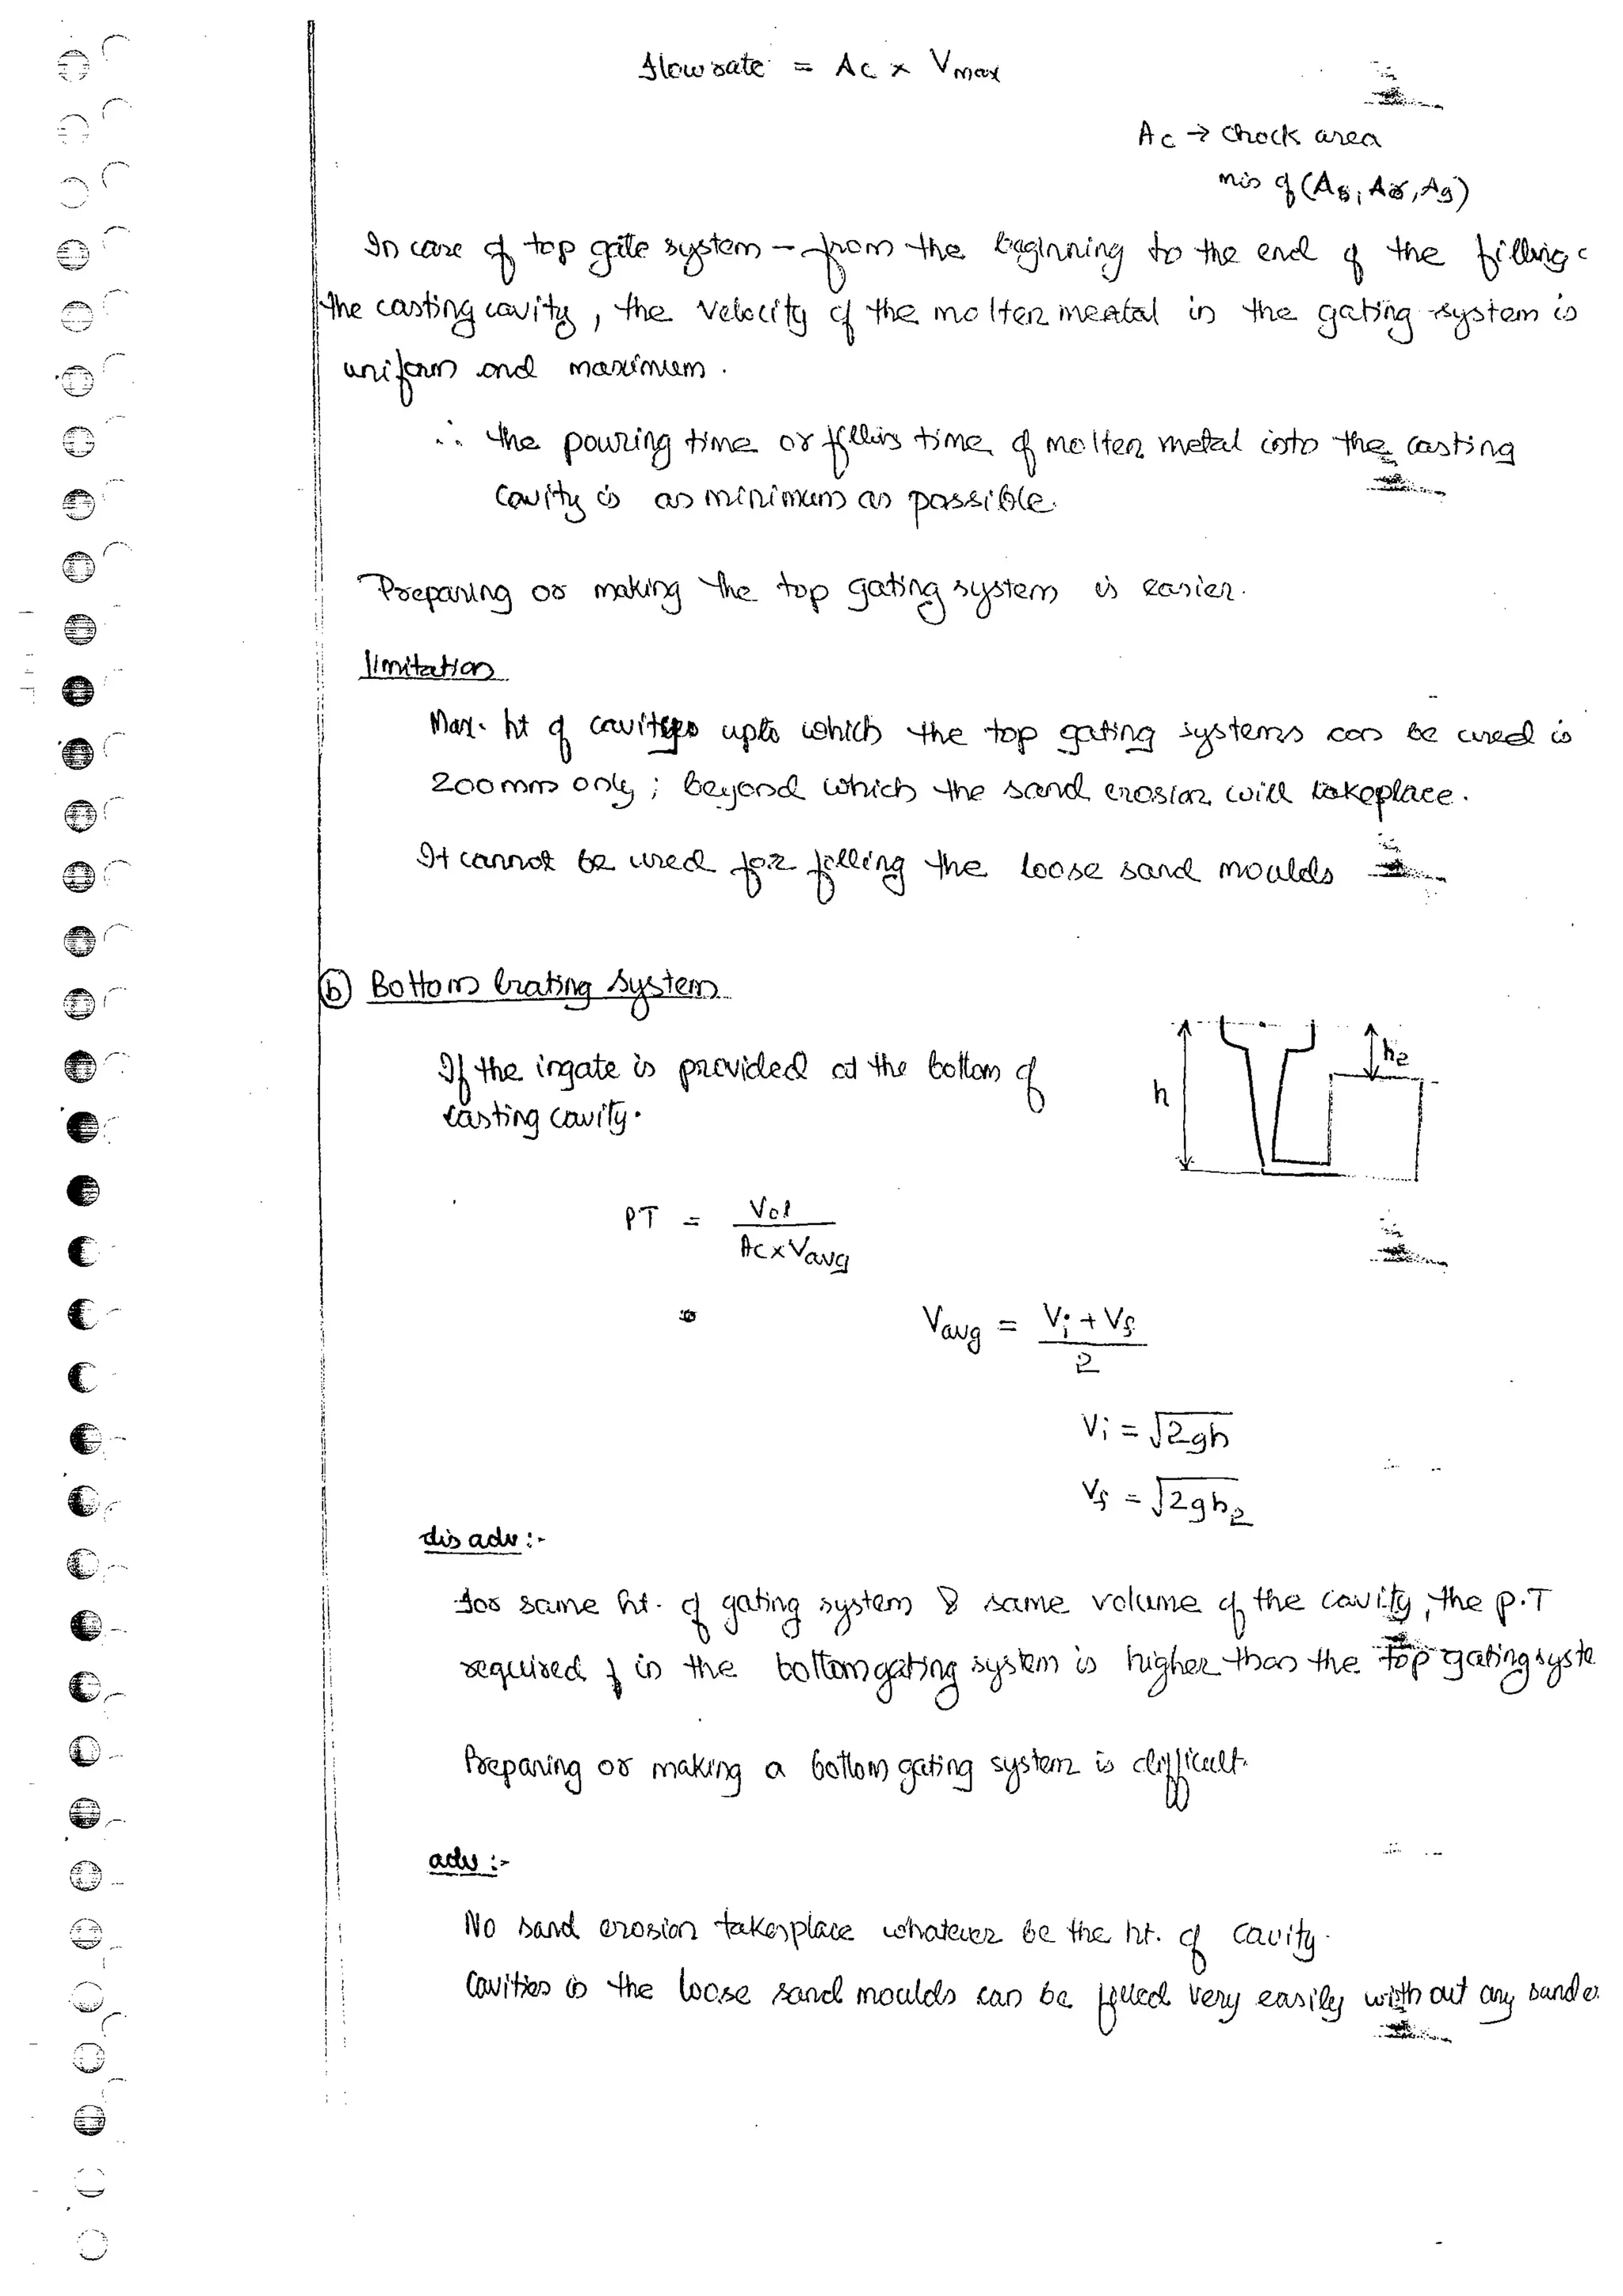 flow rate = Ac x Vmax
Ac → chock area
min of (As, Ar, Ag)
In case of top gate system - from the beginning to the end of the filling
the casting cavity, the velocity of the molten meatal in the gating system is
uniform and maximum.
∴ the pouring time or filling time of molten metal into the casting
cavity is as minimum as possible.
Preparing or making the top gating system is easier.
limitation
Max. ht of cavities upto which the top gating systems can be used is
200mm only; beyond which the sand erosion will takeplace.
It cannot be used for filling the loose sand moulds
(b) Bottom Grating System
If the ingate is provided at the bottom of
casting cavity.
h
h2
PT = Vol / Ac x Vavg
Vavg = Vi + Vf / 2
Vi = √2gh
Vf = √2gh2
dis adv :-
for same ht. of gating system & same volume of the cavity, the p.T
required in the bottom gating system is higher than the top gating syste
Preparing or making a bottom gating system is difficult.
adv :-
No sand erosion takesplace whatever be the ht. of cavity.
Cavities in the loose sand moulds can be filled very easily without any sand e